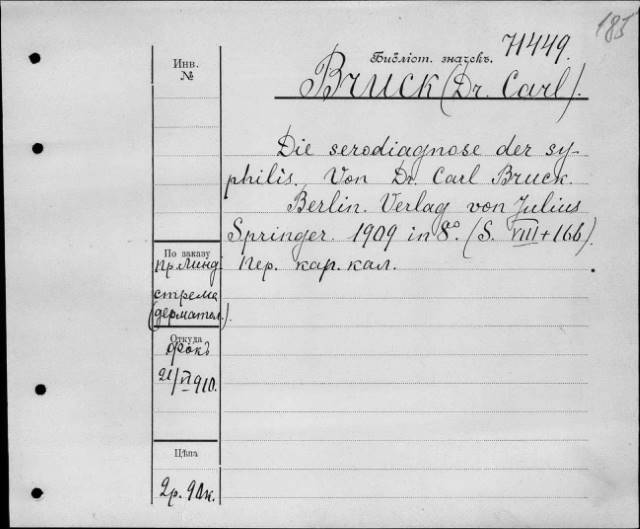 185
71449.
Библіот. значекъ.
Инв.
№
Bruck (Dr. Carl).
Die serodiagnose der sy-
philis. Von Dr. Carl Bruck.
Berlin. Verlag von Julius
Springer. 1909 in 8°. (S. VIII + 166).
Пер. кар. кал.
По заказу
пр. Линд
стрема
(дерматол.).
Откуда
Фокъ
21/VI 910.
Цѣна
2р. 90к.